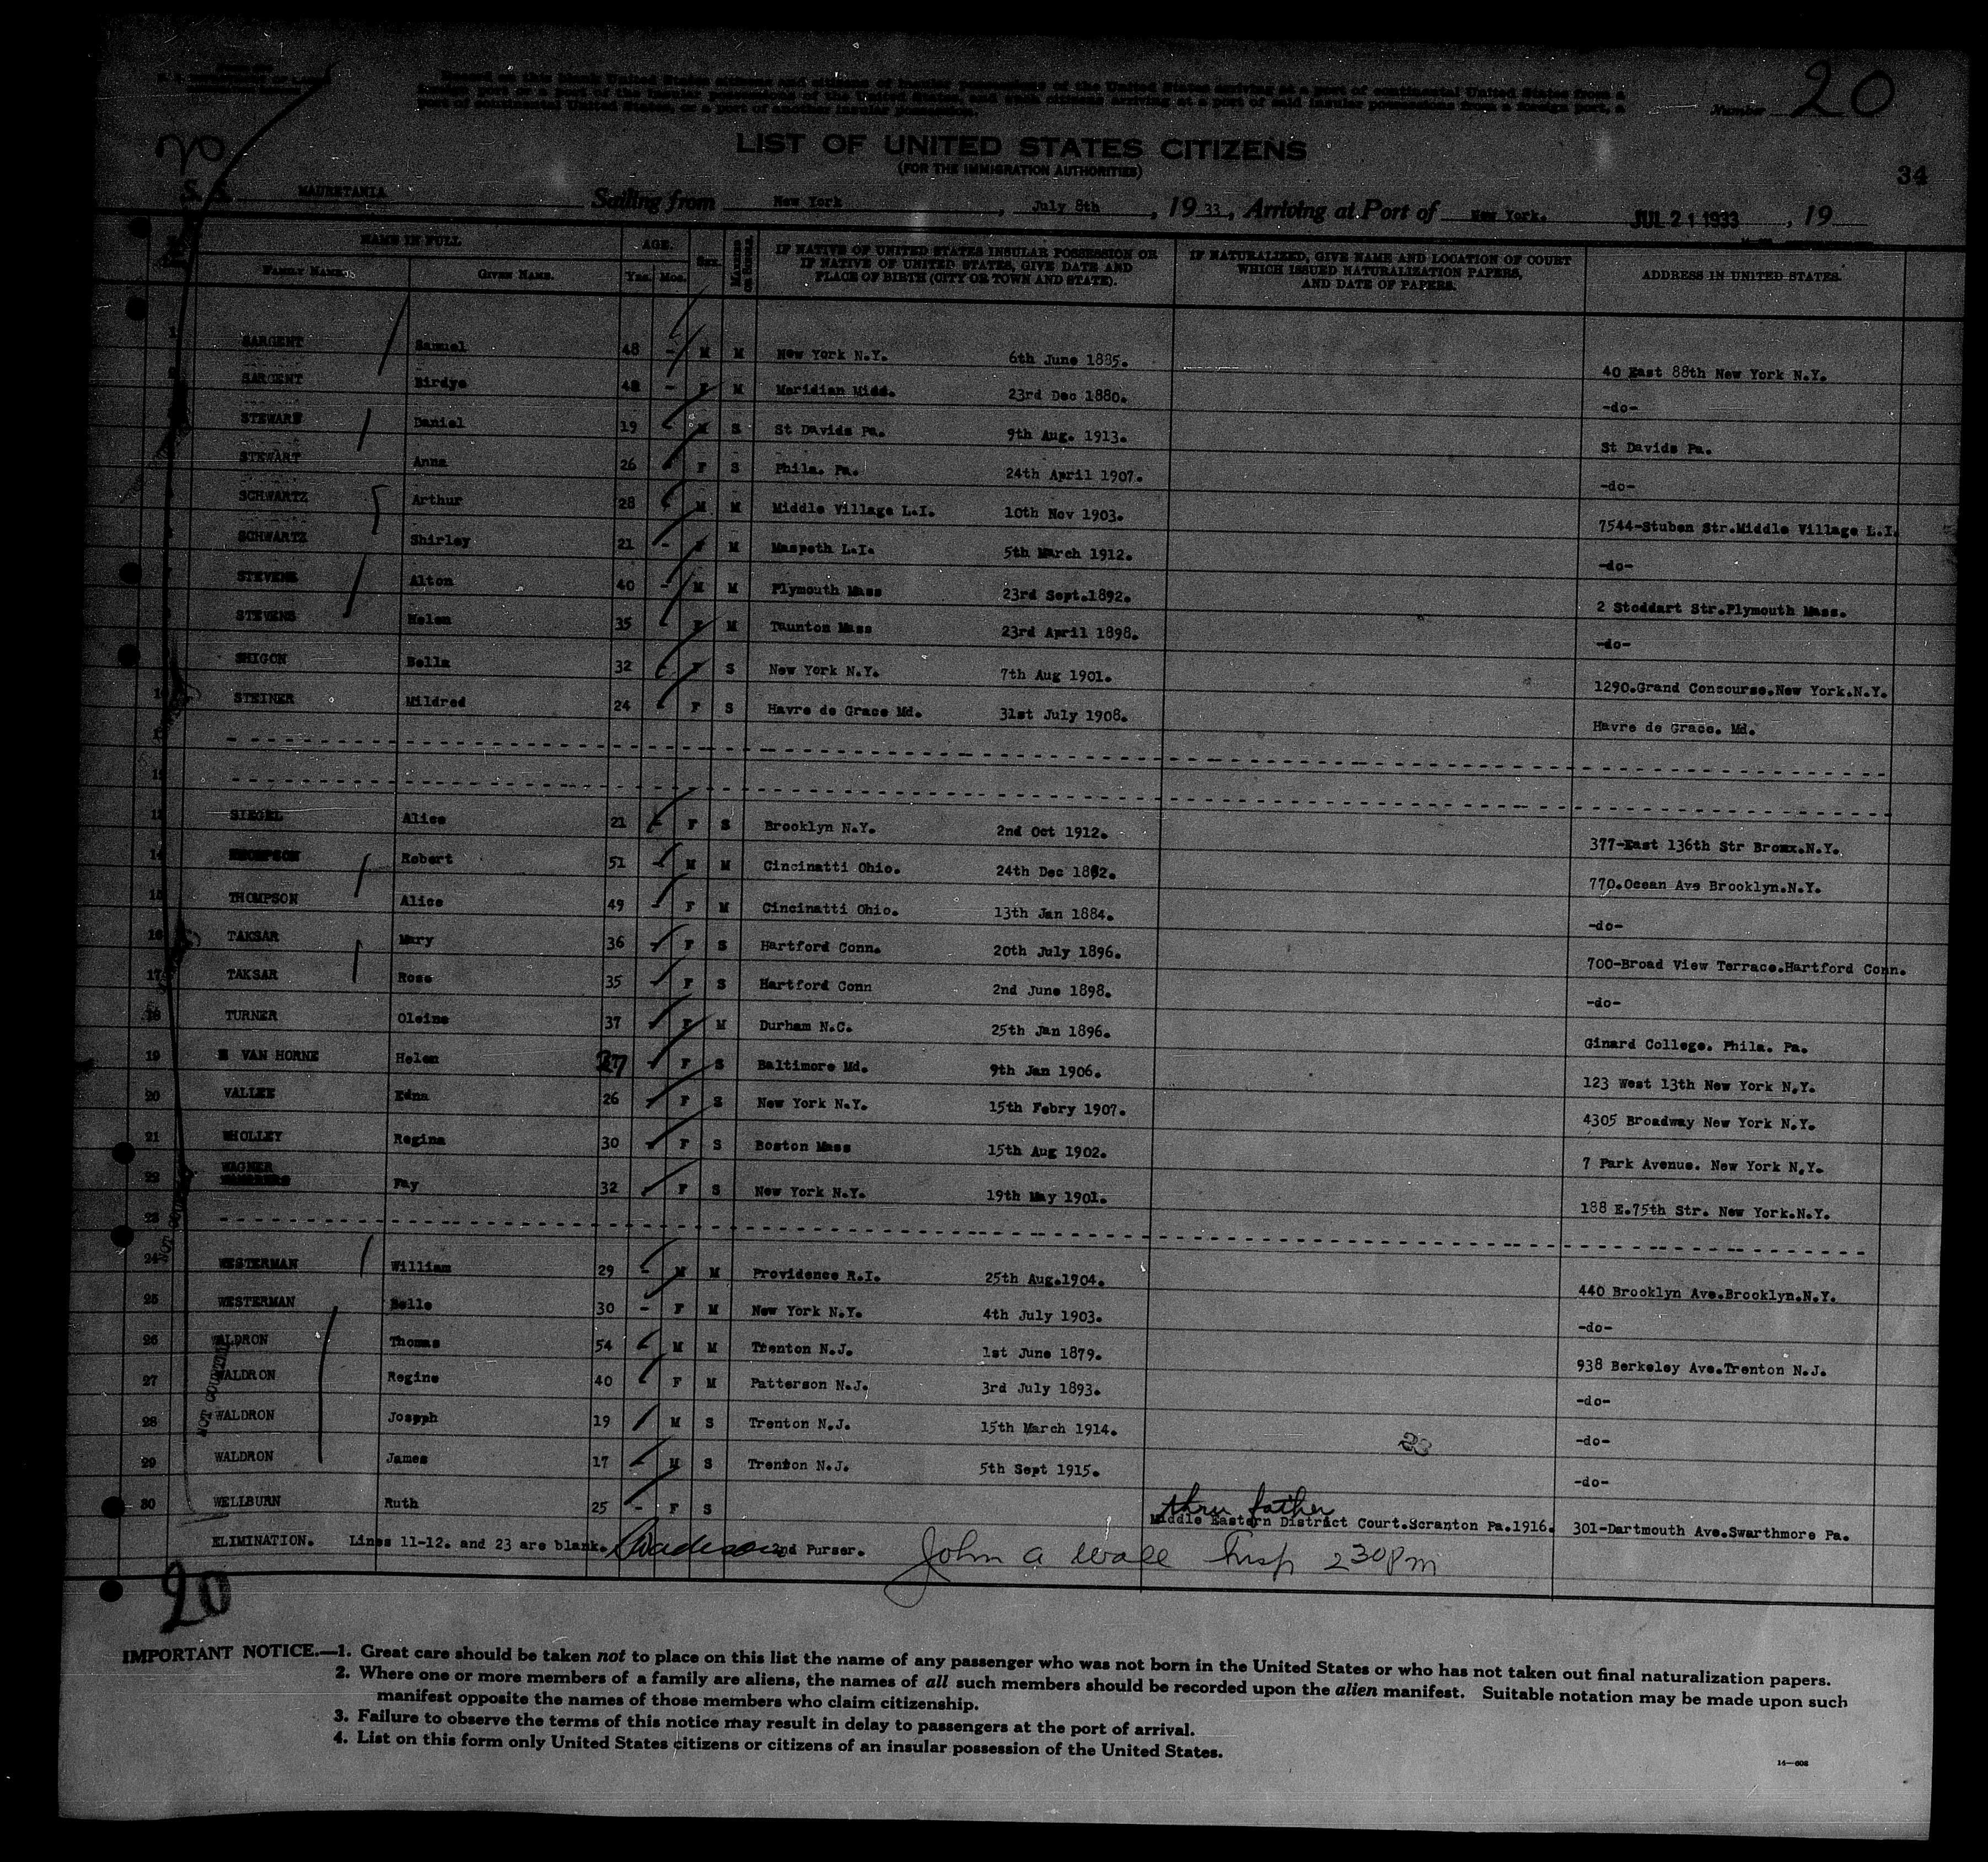 Number 20
LIST OF UNITED STATES CITIZENS
(FOR THE IMMIGRATION AUTHORITIES)
20
34
S. S. MAURETANIA Sailing from New York, July 8th, 1933, Arriving at Port of New York. JUL 21 1933, 19
NAME IN FULL AGE. SEX. MARRIED OR SINGLE. IF NATIVE OF UNITED STATES INSULAR POSSESSION OR IF NATIVE OF UNITED STATES, GIVE DATE AND PLACE OF BIRTH (CITY OR TOWN AND STATE). IF NATURALIZED, GIVE NAME AND LOCATION OF COURT WHICH ISSUED NATURALIZATION PAPERS, AND DATE OF PAPERS. ADDRESS IN UNITED STATES.
FAMILY NAME. GIVEN NAME. Yrs. Mos.
1 SARGENT Samuel 48 - M M New York N.Y. 6th June 1885. 40 East 88th New York N.Y.
SARGENT Birdye 48 - F M Meridian Midd. 23rd Dec 1880. -do-
STEWART Daniel 19 - M S St Davids Pa. 9th Aug. 1913. St Davids Pa.
STEWART Anna 26 F S Phila. Pa. 24th April 1907. -do-
SCHWARTZ Arthur 28 M M Middle Village L.I. 10th Nov 1903. 7544-Stuben Str.Middle Village L.I.
SCHWARTZ Shirley 21 - F M Maspeth L.I. 5th March 1912. -do-
STEVENS Alton 40 - M M Plymouth Mass 23rd Sept.1892. 2 Stoddart Str.Plymouth Mass.
STEVENS Helen 35 F M Taunton Mass 23rd April 1898. -do-
SHIGON Bella 32 F S New York N.Y. 7th Aug 1901. 1290.Grand Concourse.New York.N.Y.
10 STEINER Mildred 24 F S Havre de Grace Md. 31st July 1908. Havre de Grace. Md.
SIEGEL Alice 21 F S Brooklyn N.Y. 2nd Oct 1912. 377-East 136th Str Bronx.N.Y.
14 THOMPSON Robert 51 M M Cincinatti Ohio. 24th Dec 1882. 770.Ocean Ave Brooklyn.N.Y.
15 THOMPSON Alice 49 F M Cincinatti Ohio. 13th Jan 1884. -do-
16 TAKSAR Mary 36 F S Hartford Conn. 20th July 1896. 700-Broad View Terrace.Hartford Conn.
17 TAKSAR Rose 35 F S Hartford Conn 2nd June 1898. -do-
18 TURNER Oleine 37 F M Durham N.C. 25th Jan 1896. Ginard College. Phila. Pa.
19 VAN HORNE Helen 27 F S Baltimore Md. 9th Jan 1906. 123 West 13th New York N.Y.
20 VALLEE Edna 26 F S New York N.Y. 15th Febry 1907. 4305 Broadway New York N.Y.
21 WHOLLEY Regina 30 F S Boston Mass 15th Aug 1902. 7 Park Avenue. New York N.Y.
22 WAGNER Fay 32 F S New York N.Y. 19th May 1901. 188 E.75th Str. New York.N.Y.
23
24 WESTERMAN William 29 - M M Providence R.I. 25th Aug.1904. 440 Brooklyn Ave.Brooklyn.N.Y.
25 WESTERMAN Belle 30 - F M New York N.Y. 4th July 1903. -do-
26 WALDRON Thomas 54 M M Trenton N.J. 1st June 1879. 938 Berkeley Ave.Trenton N.J.
27 WALDRON Regine 40 F M Patterson N.J. 3rd July 1893. -do-
28 WALDRON Joseph 19 M S Trenton N.J. 15th March 1914. -do-
29 WALDRON James 17 M S Trenton N.J. 5th Sept 1915. -do-
30 WELLBURN Ruth 25 - F S thru father Middle Eastern District Court.Scranton Pa.1916. 301-Dartmouth Ave.Swarthmore Pa.
NOT COUNTED
ELIMINATION. Lines 11-12. and 23 are blank. 2nd Purser. John A Wall Insp 230pm
20
IMPORTANT NOTICE.—1. Great care should be taken not to place on this list the name of any passenger who was not born in the United States or who has not taken out final naturalization papers.
2. Where one or more members of a family are aliens, the names of all such members should be recorded upon the alien manifest. Suitable notation may be made upon such
manifest opposite the names of those members who claim citizenship.
3. Failure to observe the terms of this notice may result in delay to passengers at the port of arrival.
4. List on this form only United States citizens or citizens of an insular possession of the United States.
14—608